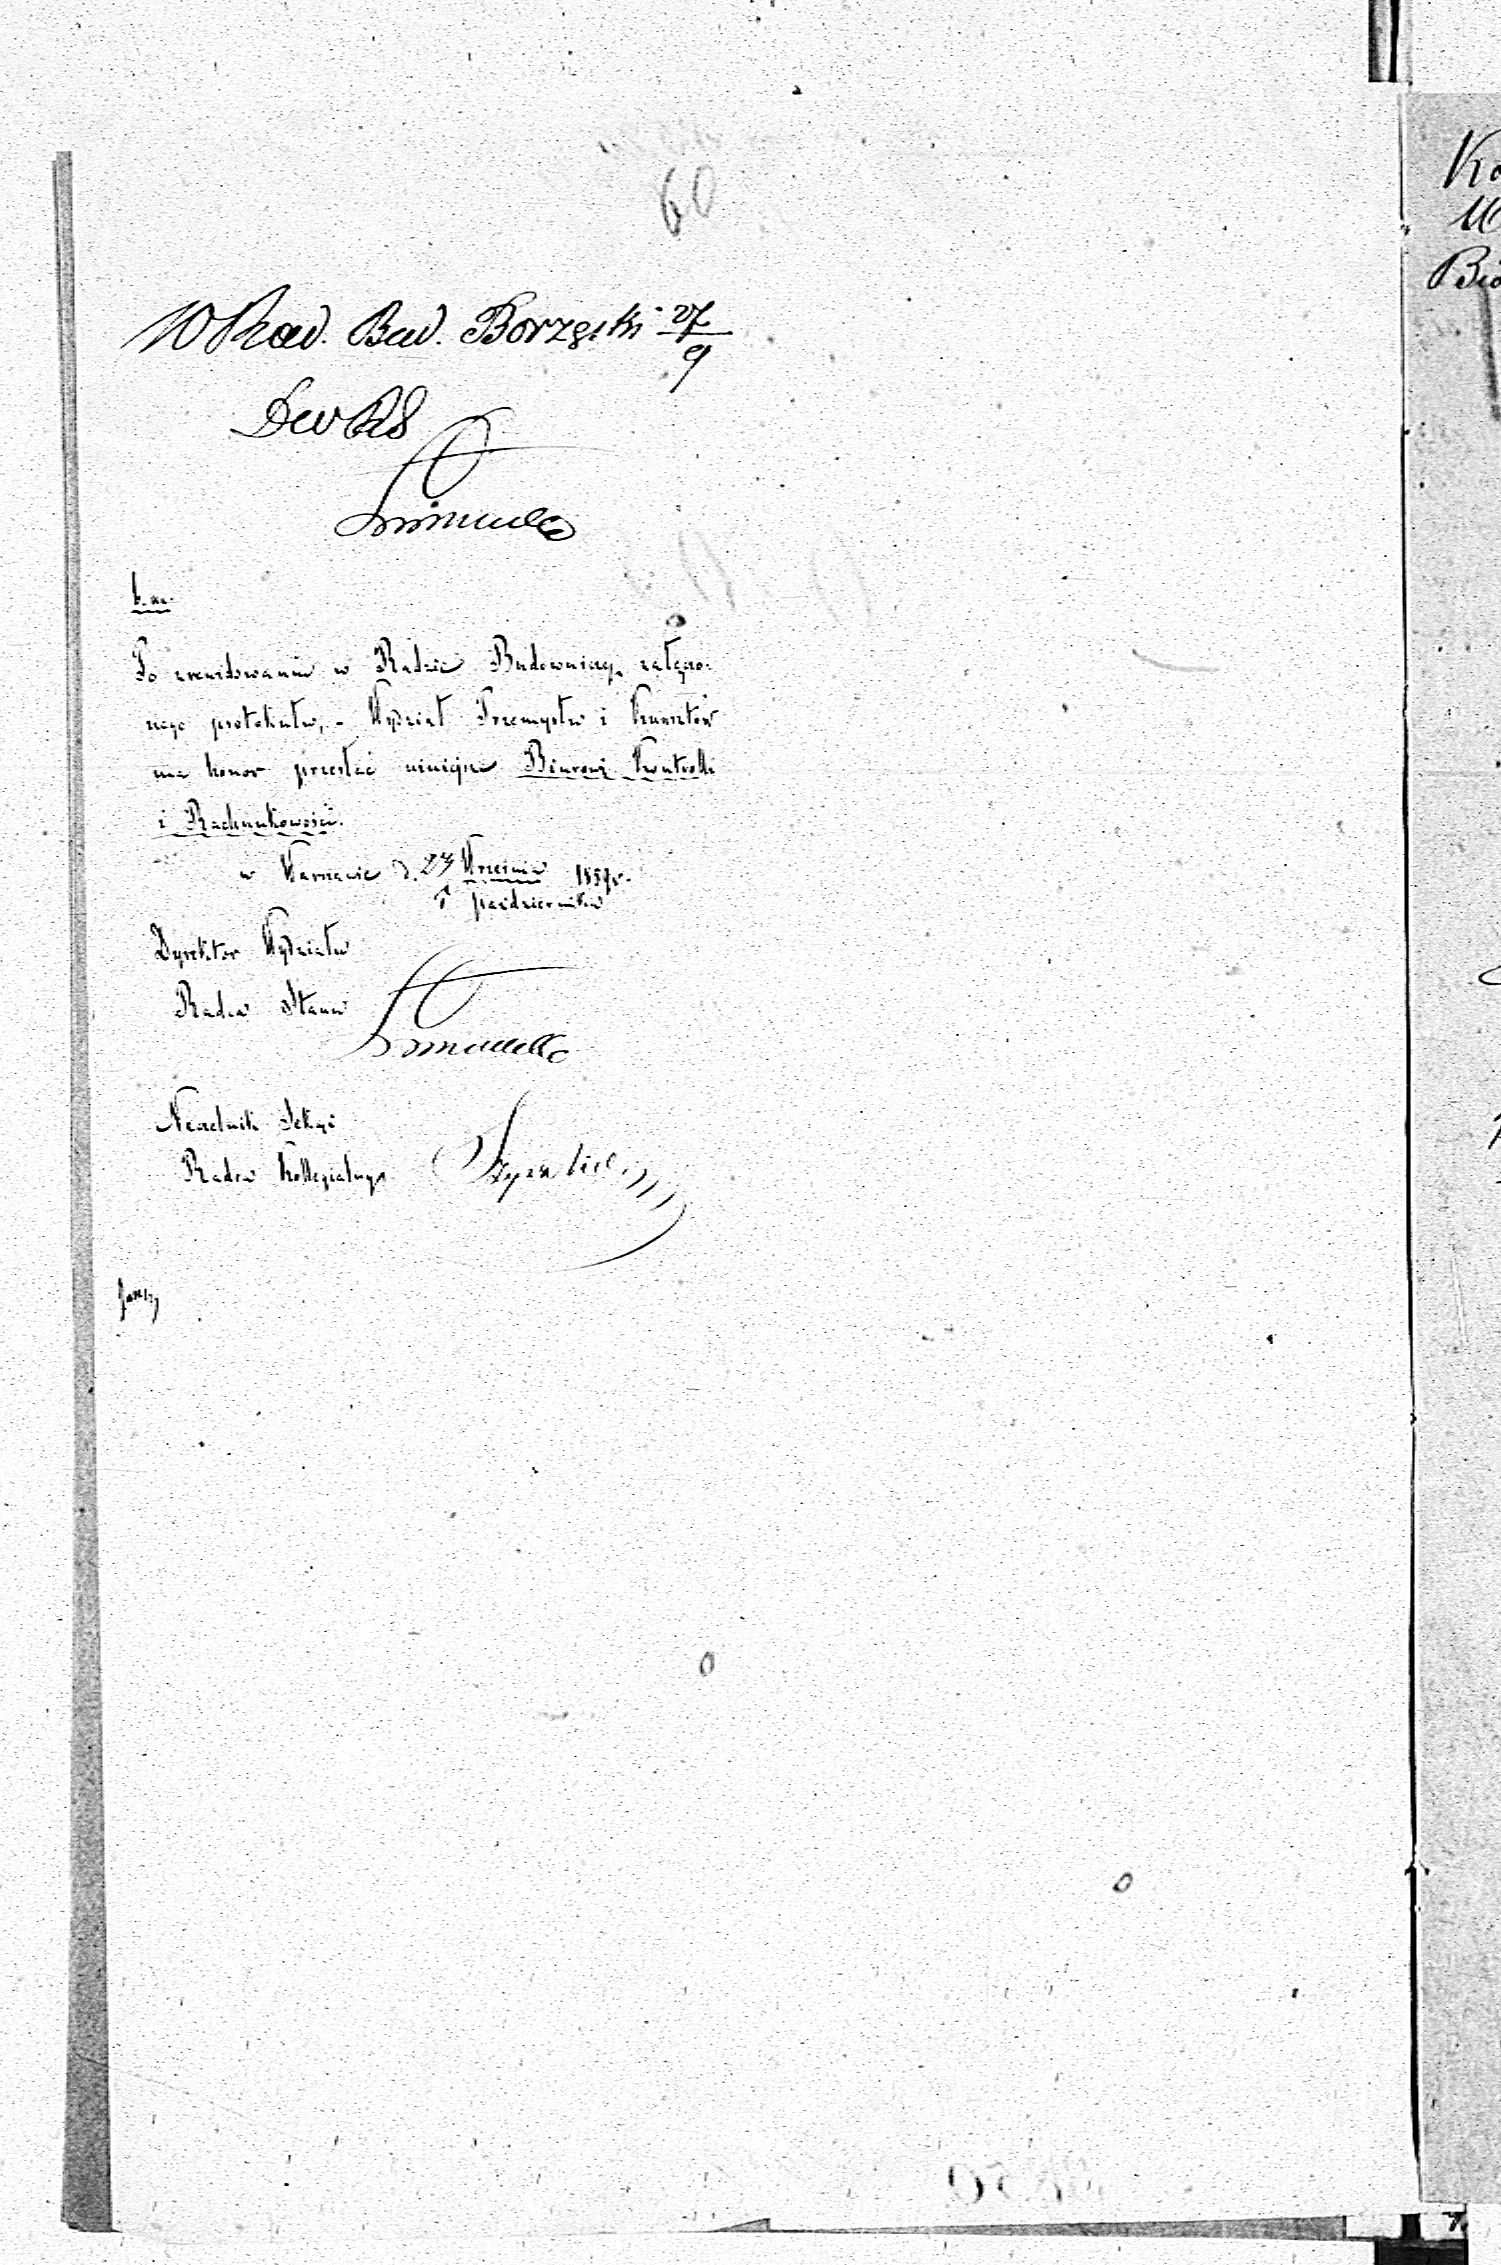 60
W Rad. Bud. Borzęcki 27/9
b. m.
Po zrewidowaniu w Radzie Budowniczej załączo-
nego protokułu, - Wydział Przemysłu i Kunsztów
ma honor przesłać niniejsze Biurowi Kontrolli
i Rachunkowości.
w Warszawie d. 27 Września 1859 r.
Października
Dyrektor Wydziału
Radca Stanu
Naczelnik Sekcyi
Radca Kollegialny